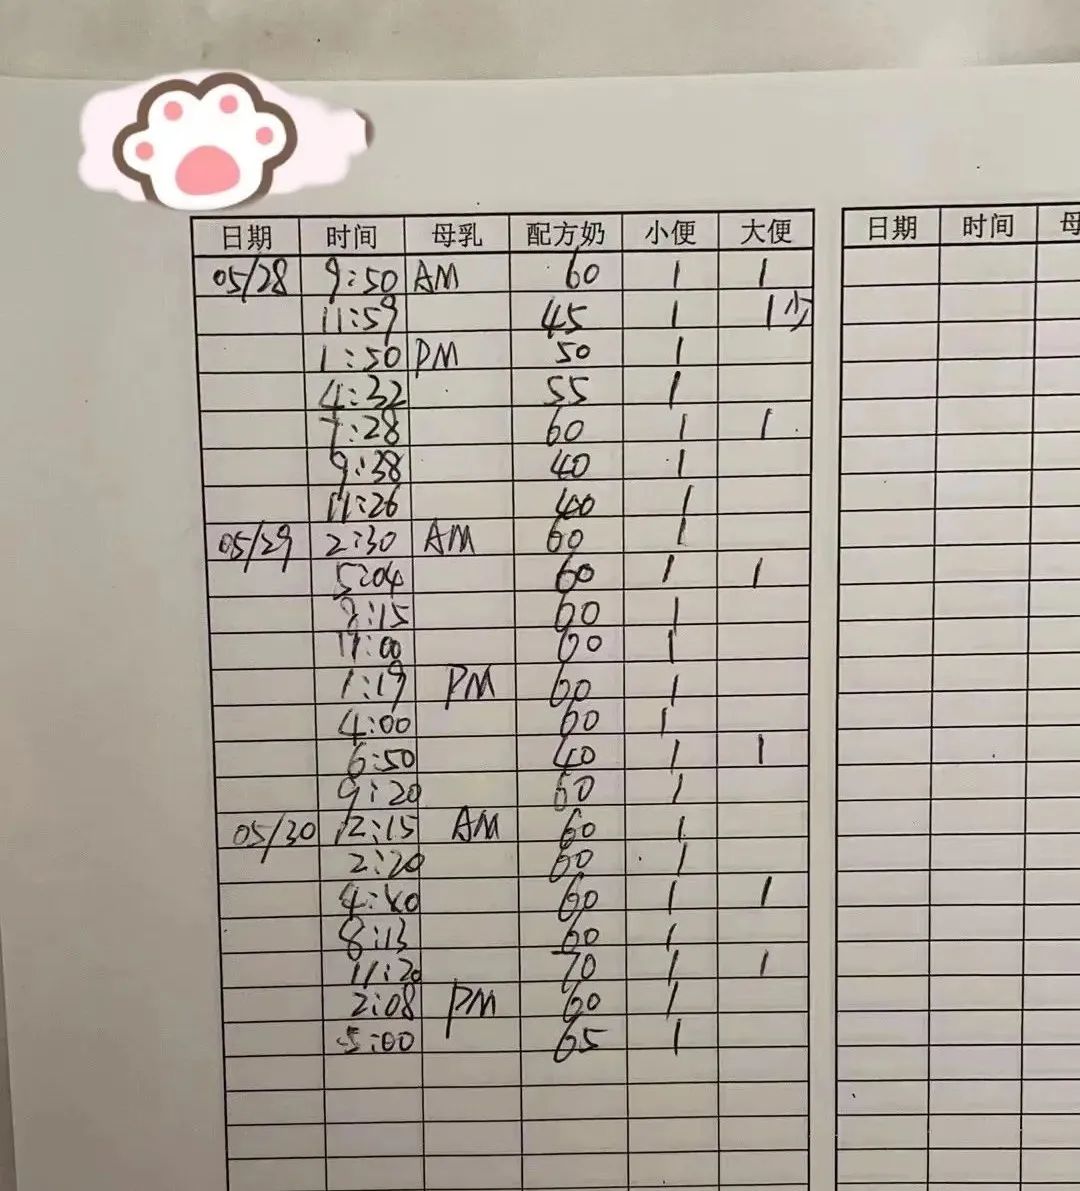 日期 时间 母乳 配方奶 小便 大便 日期 时间 母
05/28 9:50 AM 60 1 1
11:59 45 1 1少
1:50 PM 50 1
4:32 55 1
7:28 60 1 1
9:38 40 1
11:26 40 1
05/29 2:30 AM 60 1
5:04 60 1 1
8:15 60 1
11:00 60 1
1:19 PM 60 1
4:00 60 1
6:50 40 1 1
9:20 60 1
05/30 12:15 AM 60 1
2:20 60 1
4:40 60 1 1
8:13 60 1
11:20 70 1 1
2:08 PM 60 1
5:00 65 1